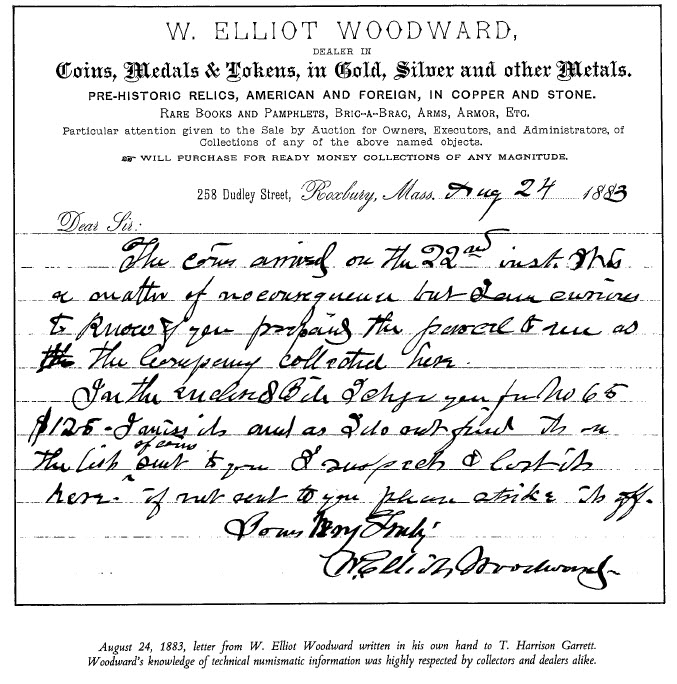 W. ELLIOT WOODWARD,
DEALER IN
Coins, Medals & Tokens, in Gold, Silver and other Metals.
PRE-HISTORIC RELICS, AMERICAN AND FOREIGN, IN COPPER AND STONE.
RARE BOOKS AND PAMPHLETS, BRIC-A-BRAC, ARMS, ARMOR, ETC.
Particular attention given to the Sale by Auction for Owners, Executors, and Administrators, of
Collections of any of the above named objects.
☞ WILL PURCHASE FOR READY MONEY COLLECTIONS OF ANY MAGNITUDE.
258 Dudley Street, Roxbury, Mass. Aug 24 1883
Dear Sir:
The coins arrived on the 22nd inst. It is
a matter of no consequence but I am curious
to know if you prepaid the parcel to me as
the Company collected here.
In the enclosed Bill I chge you for No 65
$1.25 - I miss it and as I do not find it on
the list of coins sent to you I suspect I lost it
here. if not sent to you please strike it off.
Yours Very Truly
W. Elliot Woodward
August 24, 1883, letter from W. Elliot Woodward written in his own hand to T. Harrison Garrett.
Woodward's knowledge of technical numismatic information was highly respected by collectors and dealers alike.